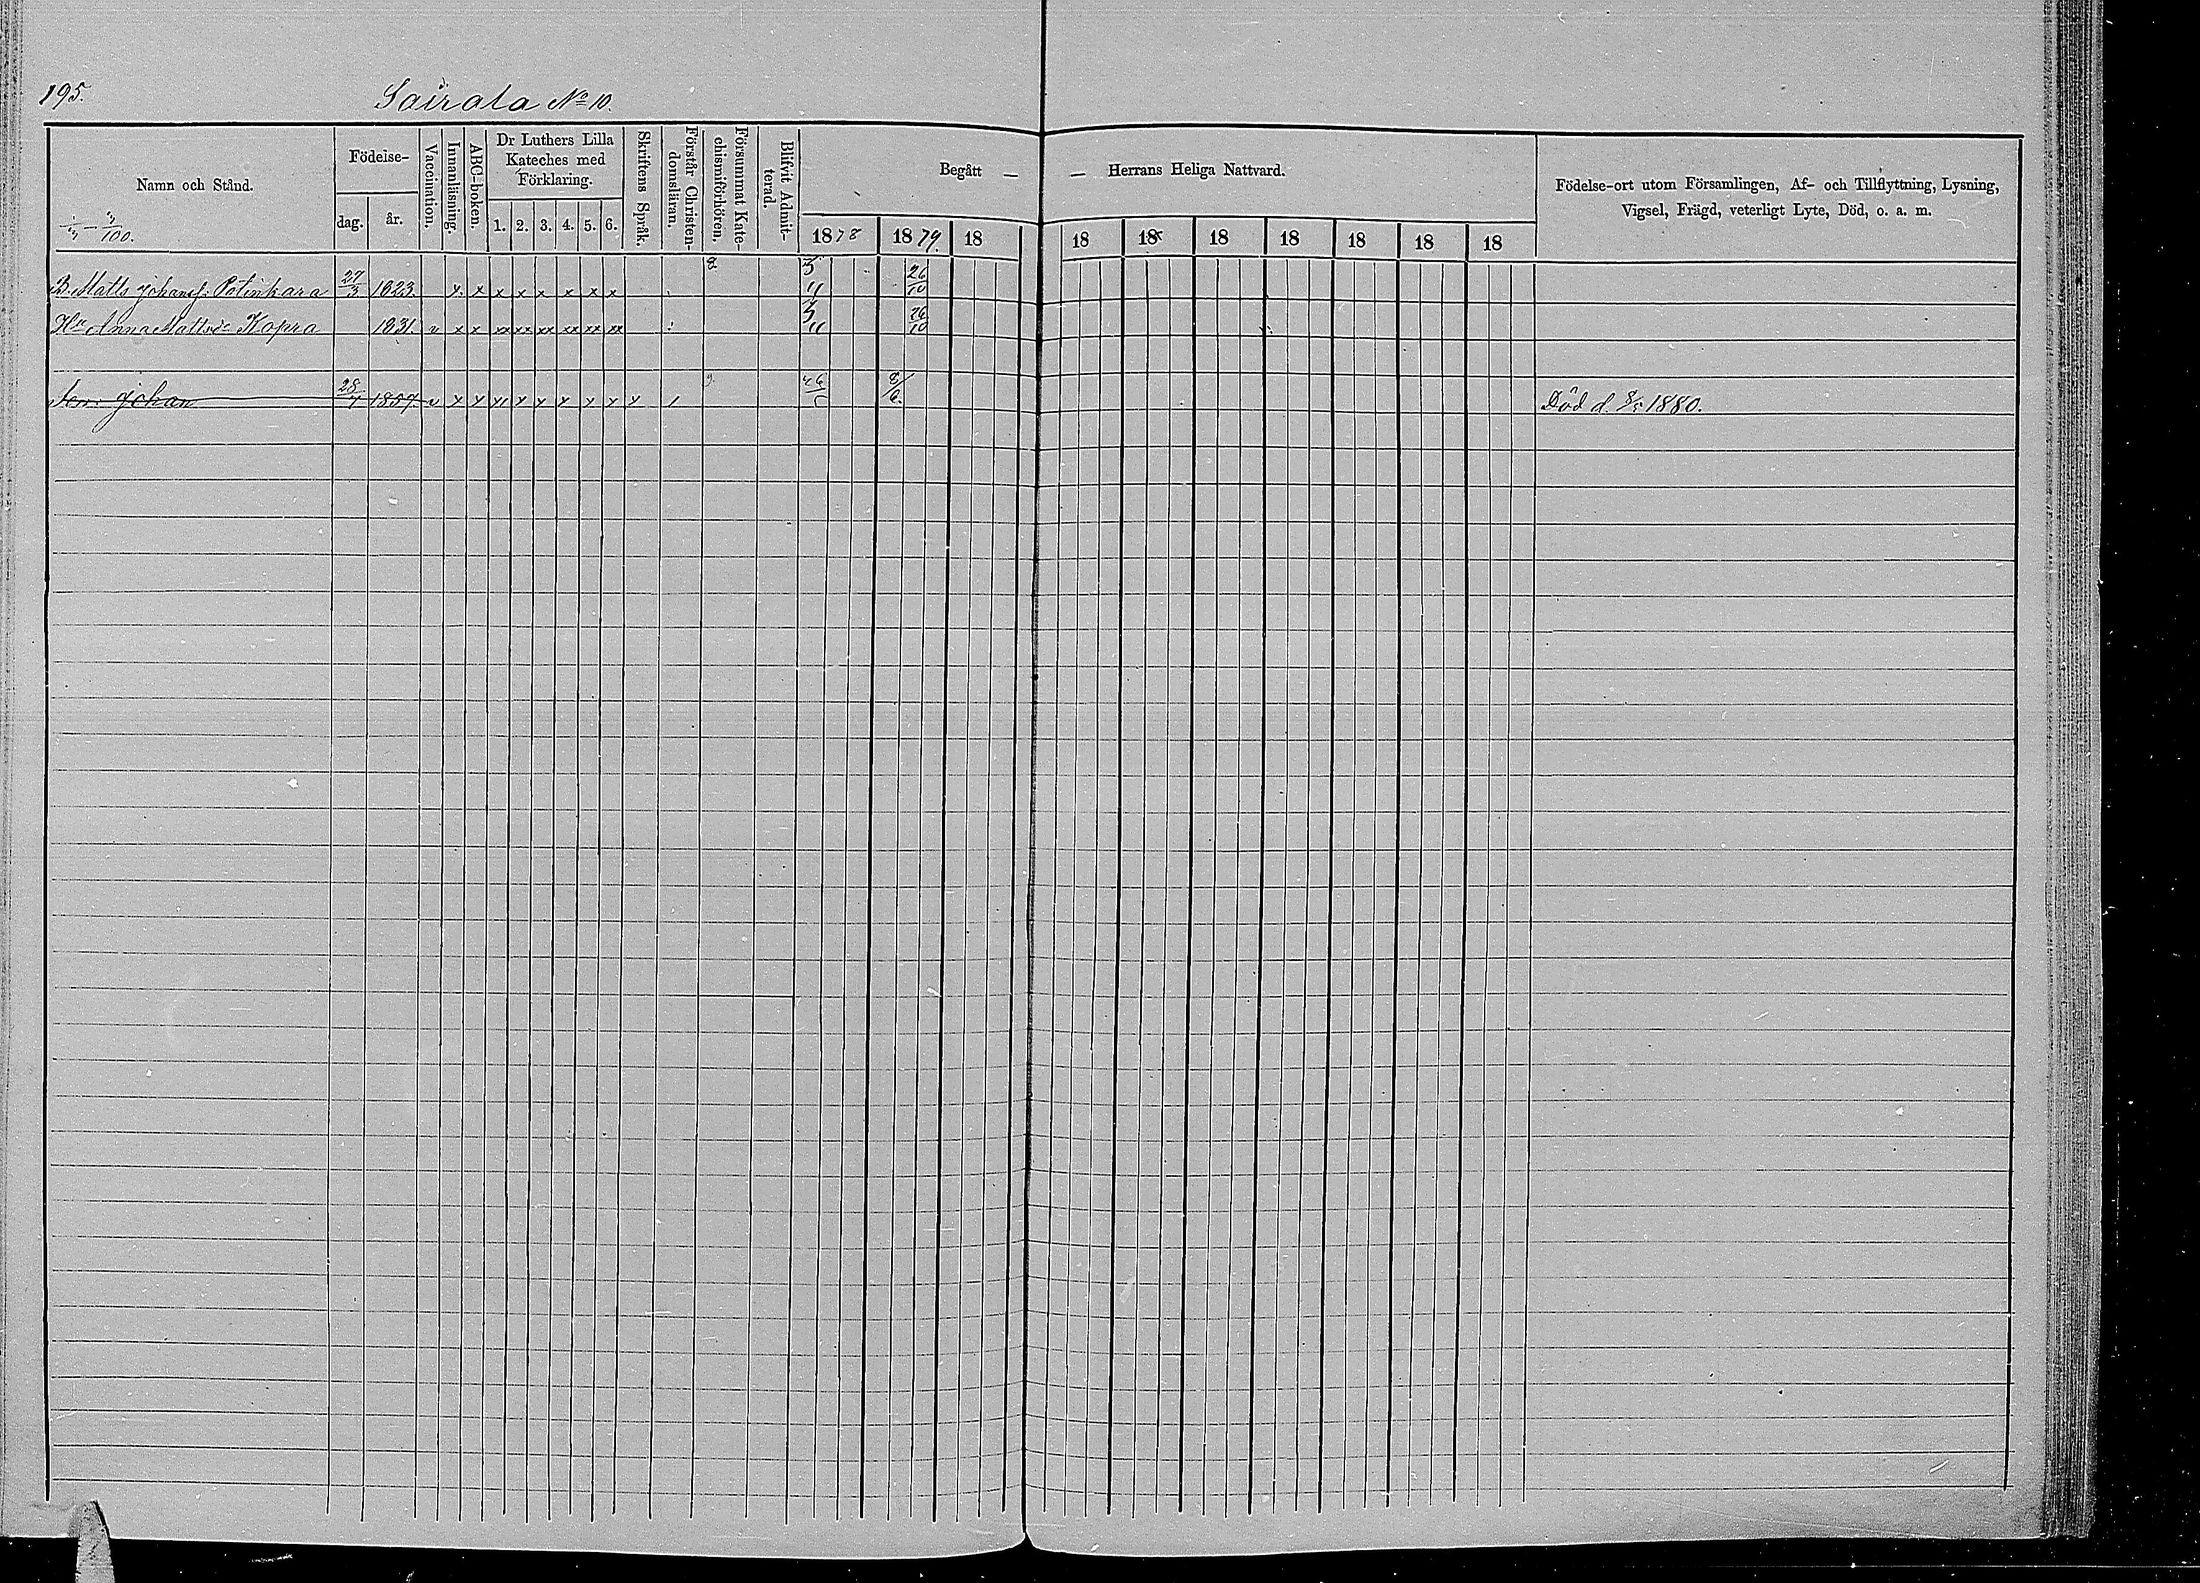 195. Sairala No 10.
Namn och Stånd.
Födelse-
dag. år.
Vaccination.
Innanläsning.
ABC-boken.
Dr Luthers Lilla
Kateches med
Förklaring.
1. 2. 3. 4. 5. 6.
Skriftens Språk.
Förstår Christen-
domsläran.
Försummat Kate-
chismiförhören.
Blifvit Admit-
terad.
Begått — — Herrans Heliga Nattvard.
1878 1879. 18 18 18 18 18 18 18 18
Födelse-ort utom Församlingen, Af- och Tillflyttning, Lysning,
Vigsel, Frägd, veterligt Lyte, Död, o. a. m.
B. Matts Johanss. Potinkara 27/3 1823. x x x x x x x x 3/11 26/10
Hu Anna Mattsdr Kopra 1831. v x x xx xx xx xx xx xx 3/11 26/10
Son Johan 1857. v x x x x x x x x x 8/6. Död d. 8/5 1880.